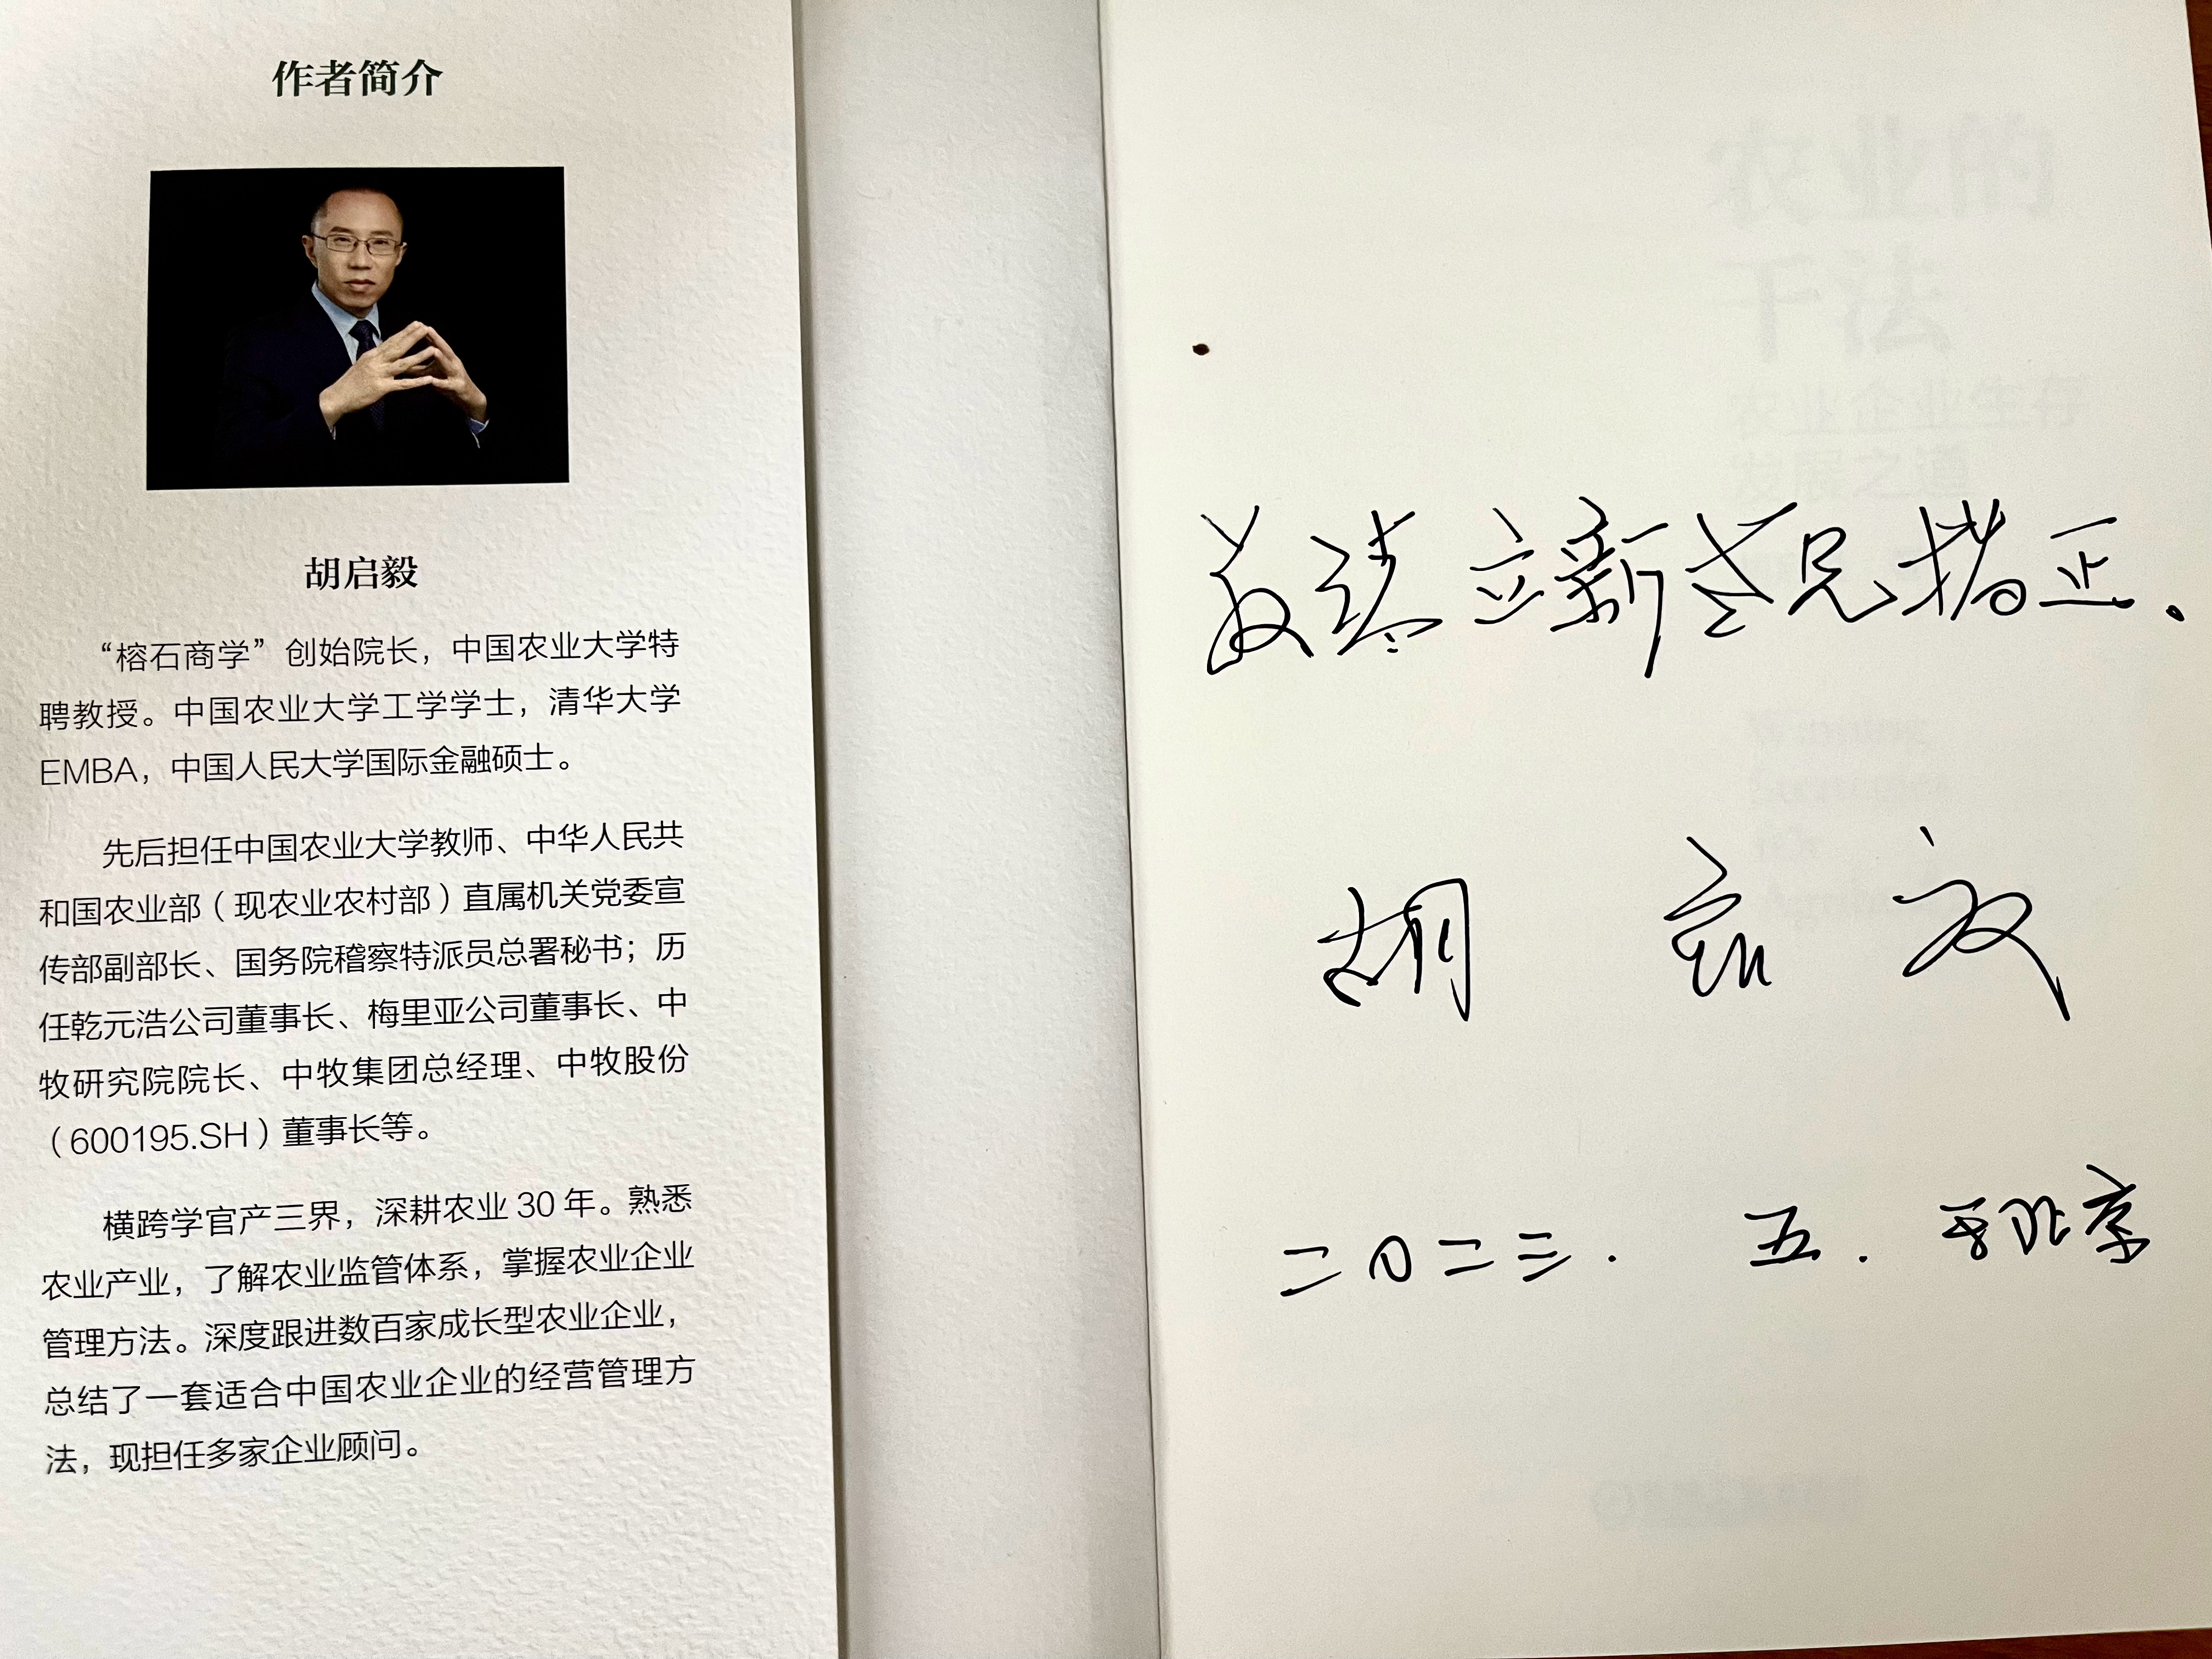 作者简介
胡启毅
“榕石商学”创始院长，中国农业大学特
聘教授。中国农业大学工学学士，清华大学
EMBA，中国人民大学国际金融硕士。
先后担任中国农业大学教师、中华人民共
和国农业部（现农业农村部）直属机关党委宣
传部副部长、国务院稽察特派员总署秘书；历
任乾元浩公司董事长、梅里亚公司董事长、中
牧研究院院长、中牧集团总经理、中牧股份
（600195.SH）董事长等。
横跨学官产三界，深耕农业30年。熟悉
农业产业，了解农业监管体系，掌握农业企业
管理方法。深度跟进数百家成长型农业企业，
总结了一套适合中国农业企业的经营管理方
法，现担任多家企业顾问。
农业的
干法
农业企业生存
发展之道
敬请立新兄指正.
胡启毅
二〇二三. 五. 于北京